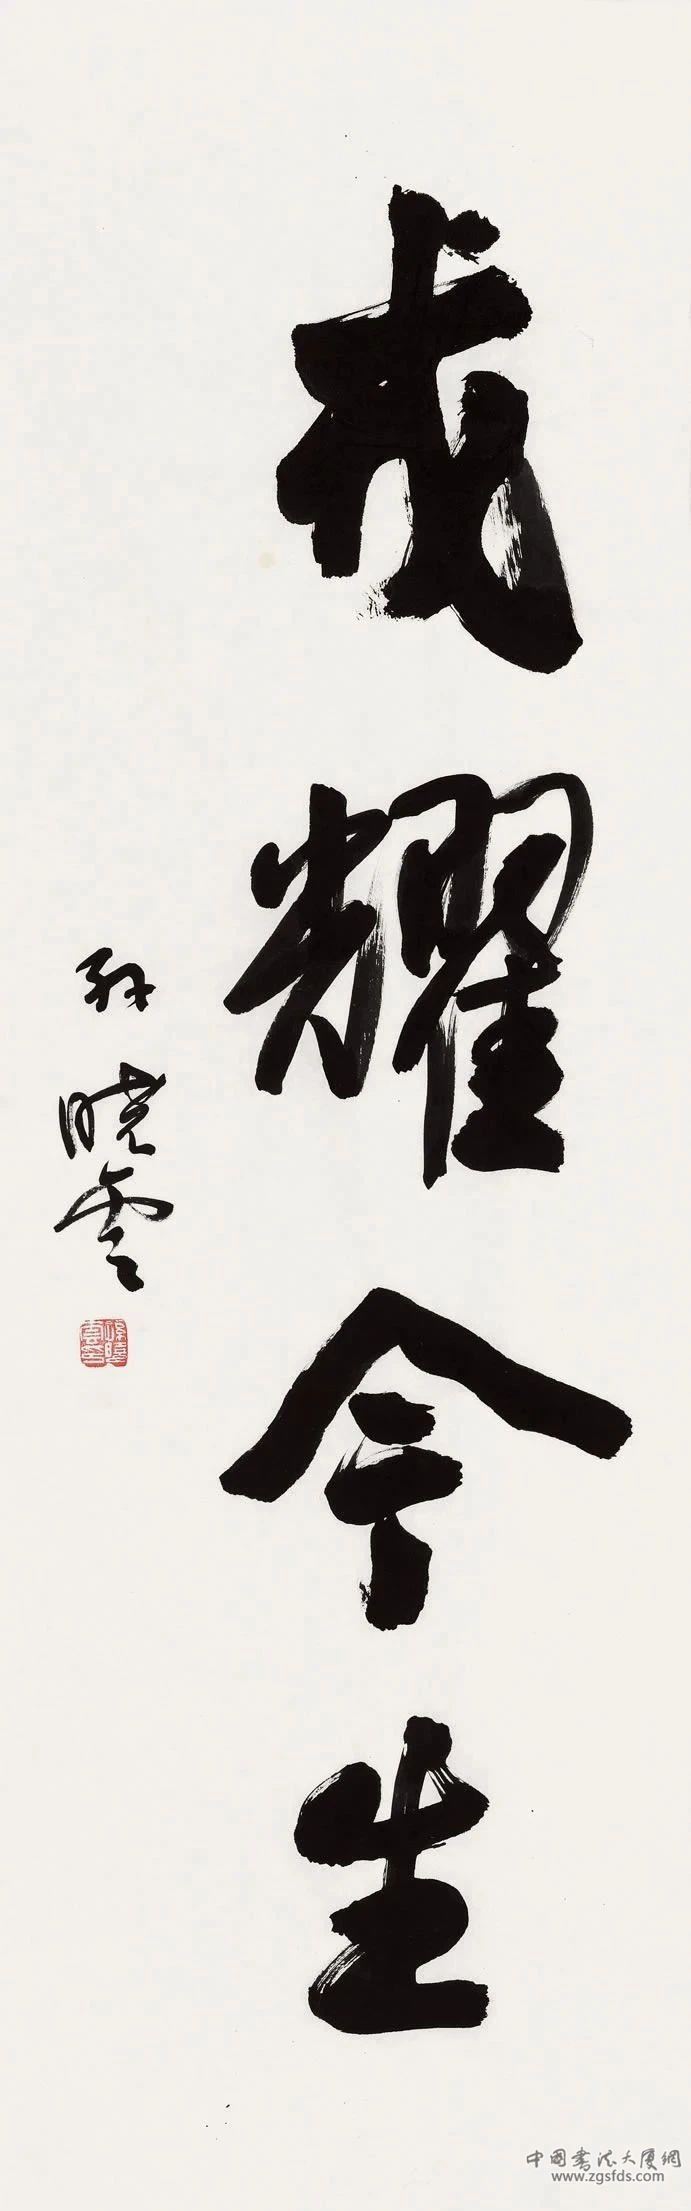 戎耀今生
孙晓云
中国书法大厦網
www.zgsfds.com